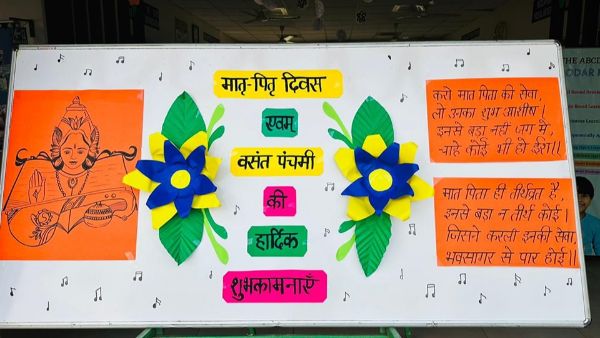 मातृ-पितृ दिवस
एवम्
वसंत पंचमी
की
हार्दिक
शुभकामनाएँ
करो मात पिता की सेवा,
लो उनका शुभ आशीष।
इनसे बड़ा नहीं जग में,
चाहे कोई भी हो ईश॥
मात पिता ही तीर्थव्रत है,
इनसे बड़ा न तीर्थ कोई।
जिसने करली इनकी सेवा,
भवसागर से पार होई॥
THE ABCD